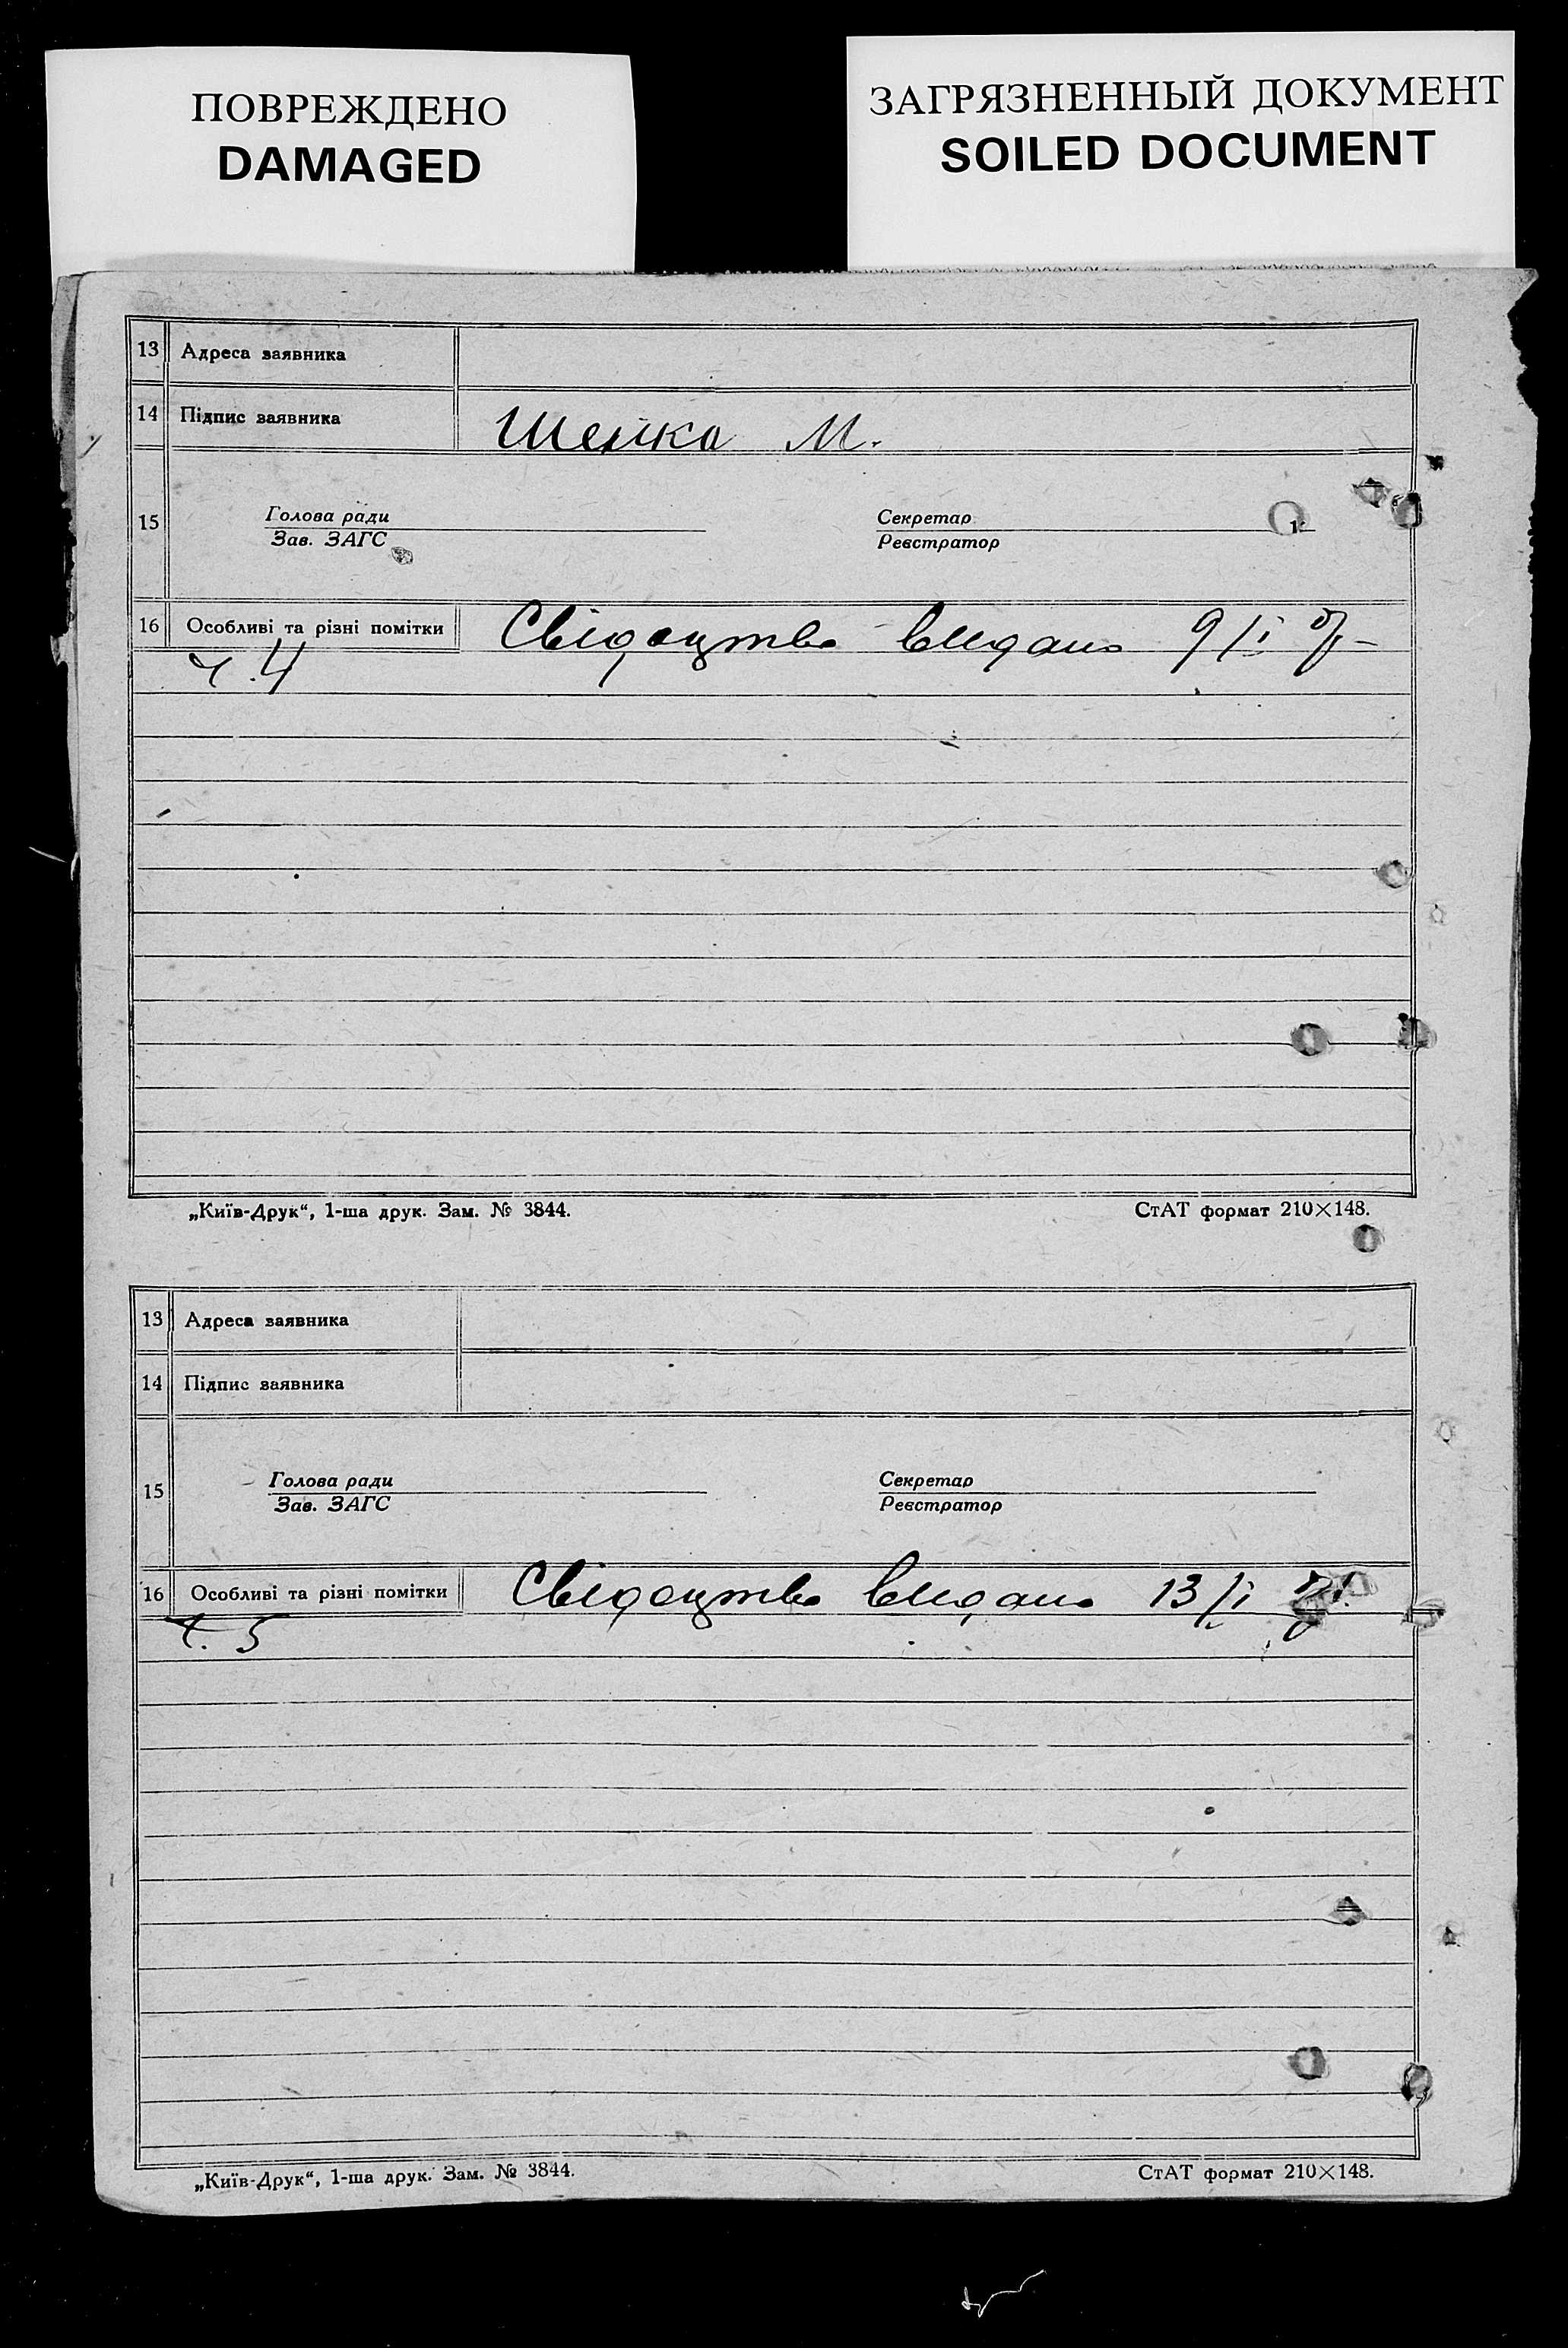 ПОВРЕЖДЕНО
DAMAGED
ЗАГРЯЗНЕННЫЙ ДОКУМЕНТ
SOILED DOCUMENT
13 Адреса заявника
14 Підпис заявника Шейка М.
15 Голова ради Секретар
Зав. ЗАГС Реєстратор
16 Особливі та різні помітки Свідоцтво видано 9/І
ч. 4
„Київ-Друк“, 1-ша друк. Зам. № 3844. СтАТ формат 210×148.
13 Адреса заявника
14 Підпис заявника
15 Голова ради Секретар
Зав. ЗАГС Реєстратор
16 Особливі та різні помітки Свідоцтво видано 13/І
ч. 5
„Київ-Друк“, 1-ша друк. Зам. № 3844. СтАТ формат 210×148.